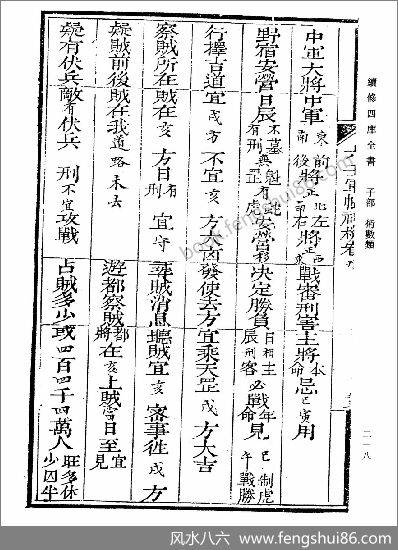 續修四庫全書 子部 術數類
二一八
中軍大將中軍東南前後將正北左右將戰審刑害主將本命忌巳寅用
野宿安營日辰不墓有刑無魁罡有蛇虎安營當移決定勝負日相主辰刑客必戰年命見巳制虎午戰勝
行擇吉道宜戌方不宜亥方商發使去方宜乘天罡戌方大吉
察賊所在賊在亥方日有刑宜守尋賊消息聽賊宜亥審事徃戌方
疑賊前後賊在我道路未去遊都察賊都將在亥上賊當日至宜見
疑有伏兵敵有伏兵刑不宜攻戰占賊多少或四百四十四萬人旺多休少囚半
book.fengshui86.com
风水八六 www.fengshui86.com